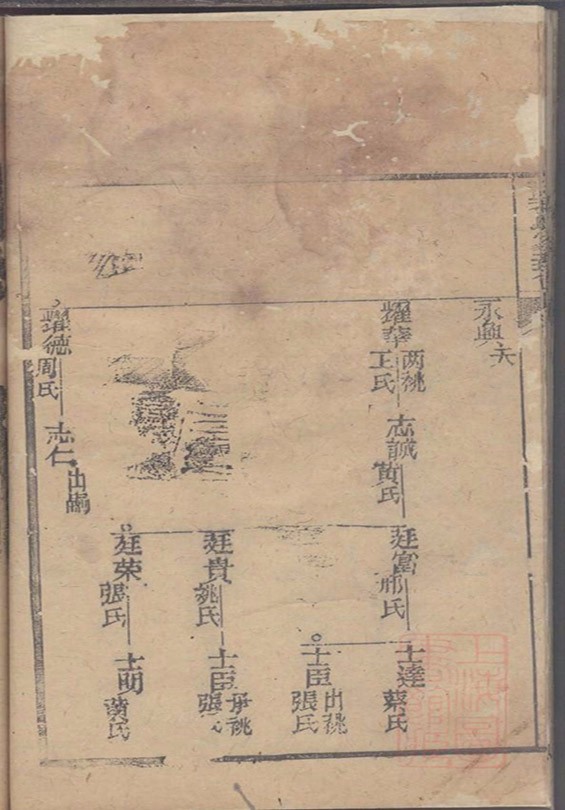 永興 夭
耀華 两祧 王氏
志誠 黄氏
廷富 邢氏
士達 蔡氏
士臣 出祧 張氏
廷貴 姚氏
士臣 承祧 張氏
廷荣 張氏
士明 蔡氏
耀德 周氏
志仁 出嗣